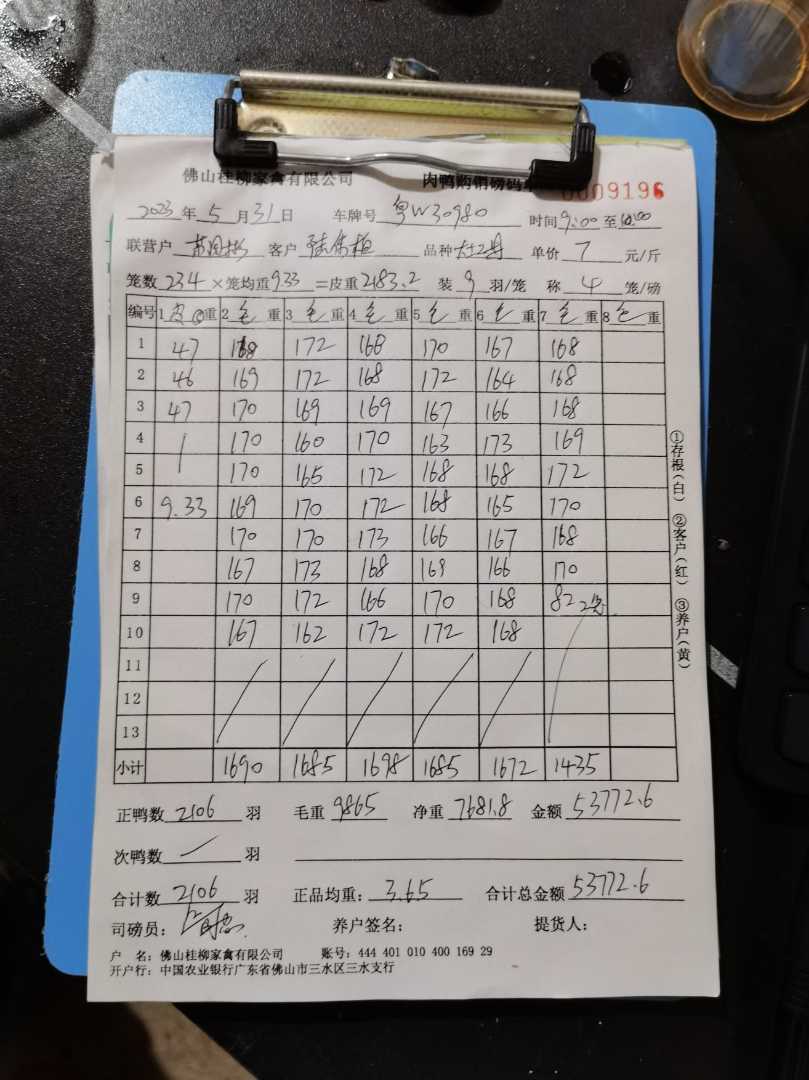 佛山桂柳家禽有限公司 肉鸭购销磅码单 0009196
2023年5月31日 车牌号 粤W30980 时间9:00至10:00
联营户 客户 品种 单价 7 元/斤
笼数 234 × 笼均重 9.33 =皮重 2183.2 装 9 羽/笼 称 4 笼/磅
编号 1 皮 重 2 毛 重 3 毛 重 4 毛 重 5 毛 重 6 毛 重 7 毛 重 8 毛 重
1 47 168 172 168 170 167 168
2 46 169 172 168 172 164 168
3 47 170 169 169 167 166 168
4 170 160 170 163 173 169
5 170 165 172 168 168 172
6 9.33 169 170 172 168 165 170
7 170 170 173 166 167 168
8 167 173 168 169 166 170
9 170 172 166 170 168 82 2笼
10 167 162 172 172 168
11
12
13
小计 1690 1685 1698 1685 1672 1435
①存根(白) ②客户(红) ③养户(黄)
正鸭数 2106 羽 毛重 9865 净重 7681.8 金额 53772.6
次鸭数 羽
合计数 2106 羽 正品均重: 3.65 合计总金额 53772.6
司磅员: 养户签名: 提货人:
户 名: 佛山桂柳家禽有限公司 账号: 444 401 010 400 169 29
开户行: 中国农业银行广东省佛山市三水区三水支行